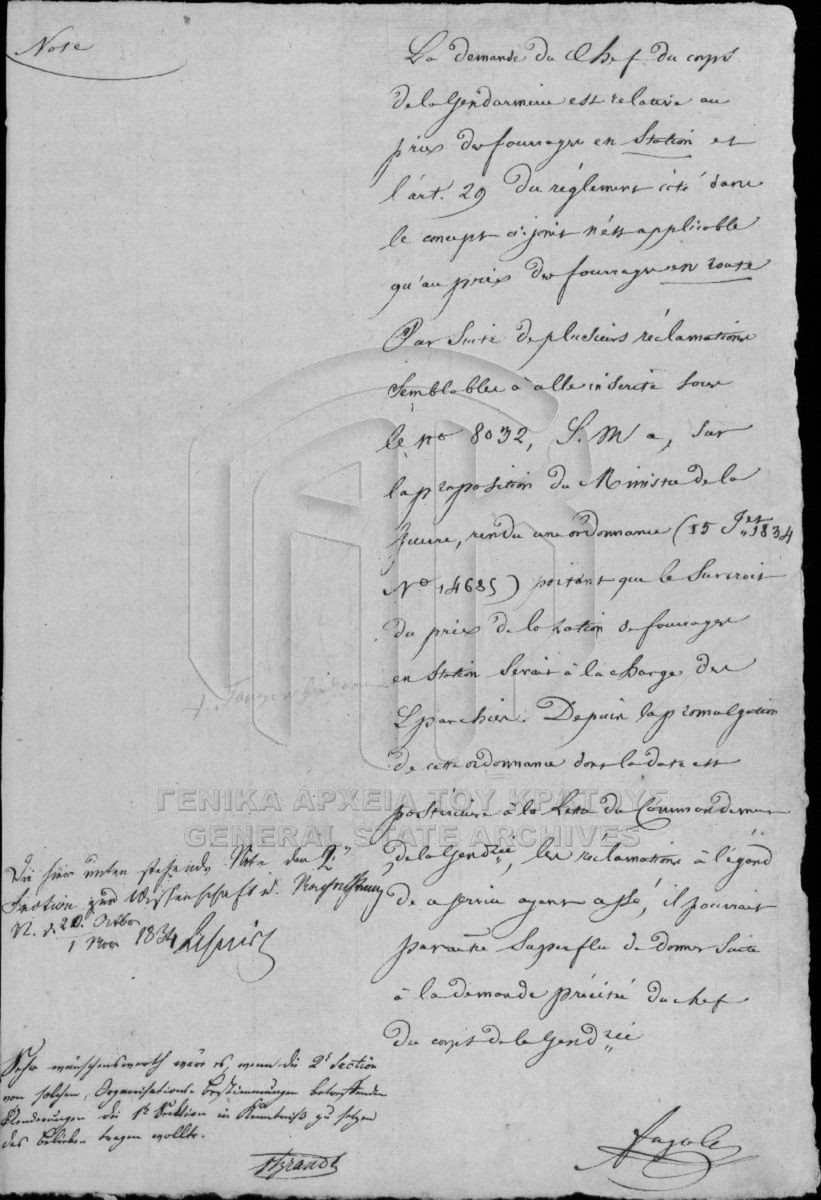 Note
La demande du Chef du corps
de la Gendarmerie est relative au
prix des fourrages en Station et
l'art. 29 du réglement cité dans
le concept ci-joint n'est applicable
qu'au prix des fourrages en route
Par Suite de plusieurs réclamations
Semblables à celle inscrite sous
le No 8032, S. M. a, sur
la proposition du Ministre de la
Guerre, rendu une ordonnance (15 Jet 1834
No 14685) portant que le Surcroit
du prix de la ration de fourrages
en Station serait à la charge des
Eparchies. Depuis la promulgation
de cette ordonnance dont la date est
postérieure à la Lettre du Commandement
de la Gendrie, les réclamations à l'égard
de ce service ayant cessé, il pourrait
paraitre Superflu de donner Suite
à la demande précitée du chef
du corps de la Gendrie
ΓΕΝΙΚΑ ΑΡΧΕΙΑ ΤΟΥ ΚΡΑΤΟΥΣ
GENERAL STATE ARCHIVES
Die hier unten stehende Note der 2n
Section zur Wissenschaft u.
N. d. 20. Octbr
1 Nov 1834
Sehr wünschenswerth wäre es, wenn die 2e Section
von solchen, Organisations-Bestimmungen betreffenden
Aenderungen die 1e Section in Kenntniß zu setzen
das Belieben tragen wollte.